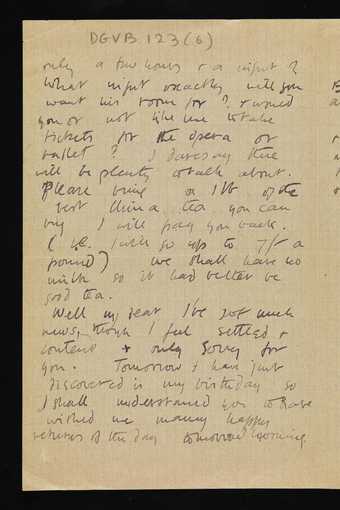 DGVB 123 (6)
only a two hours & a night?
What night exactly will you
want his room for? & would
you or not like me to take
tickets for the opera or
ballet? I daresay there
will be plenty to talk about.
Please bring a 1lb of the
best China tea you can
buy I will pay you back.
(i.e. I will go up to 7/- a
pound) We shall have no
milk so it had better be
good tea.
Well my dear I've not much
news, though I feel settled &
content & only sorry for
you. Tomorrow I have just
discovered is my birthday so
I shall understand you to have
wished me many happy
returns of the day tomorrow morning